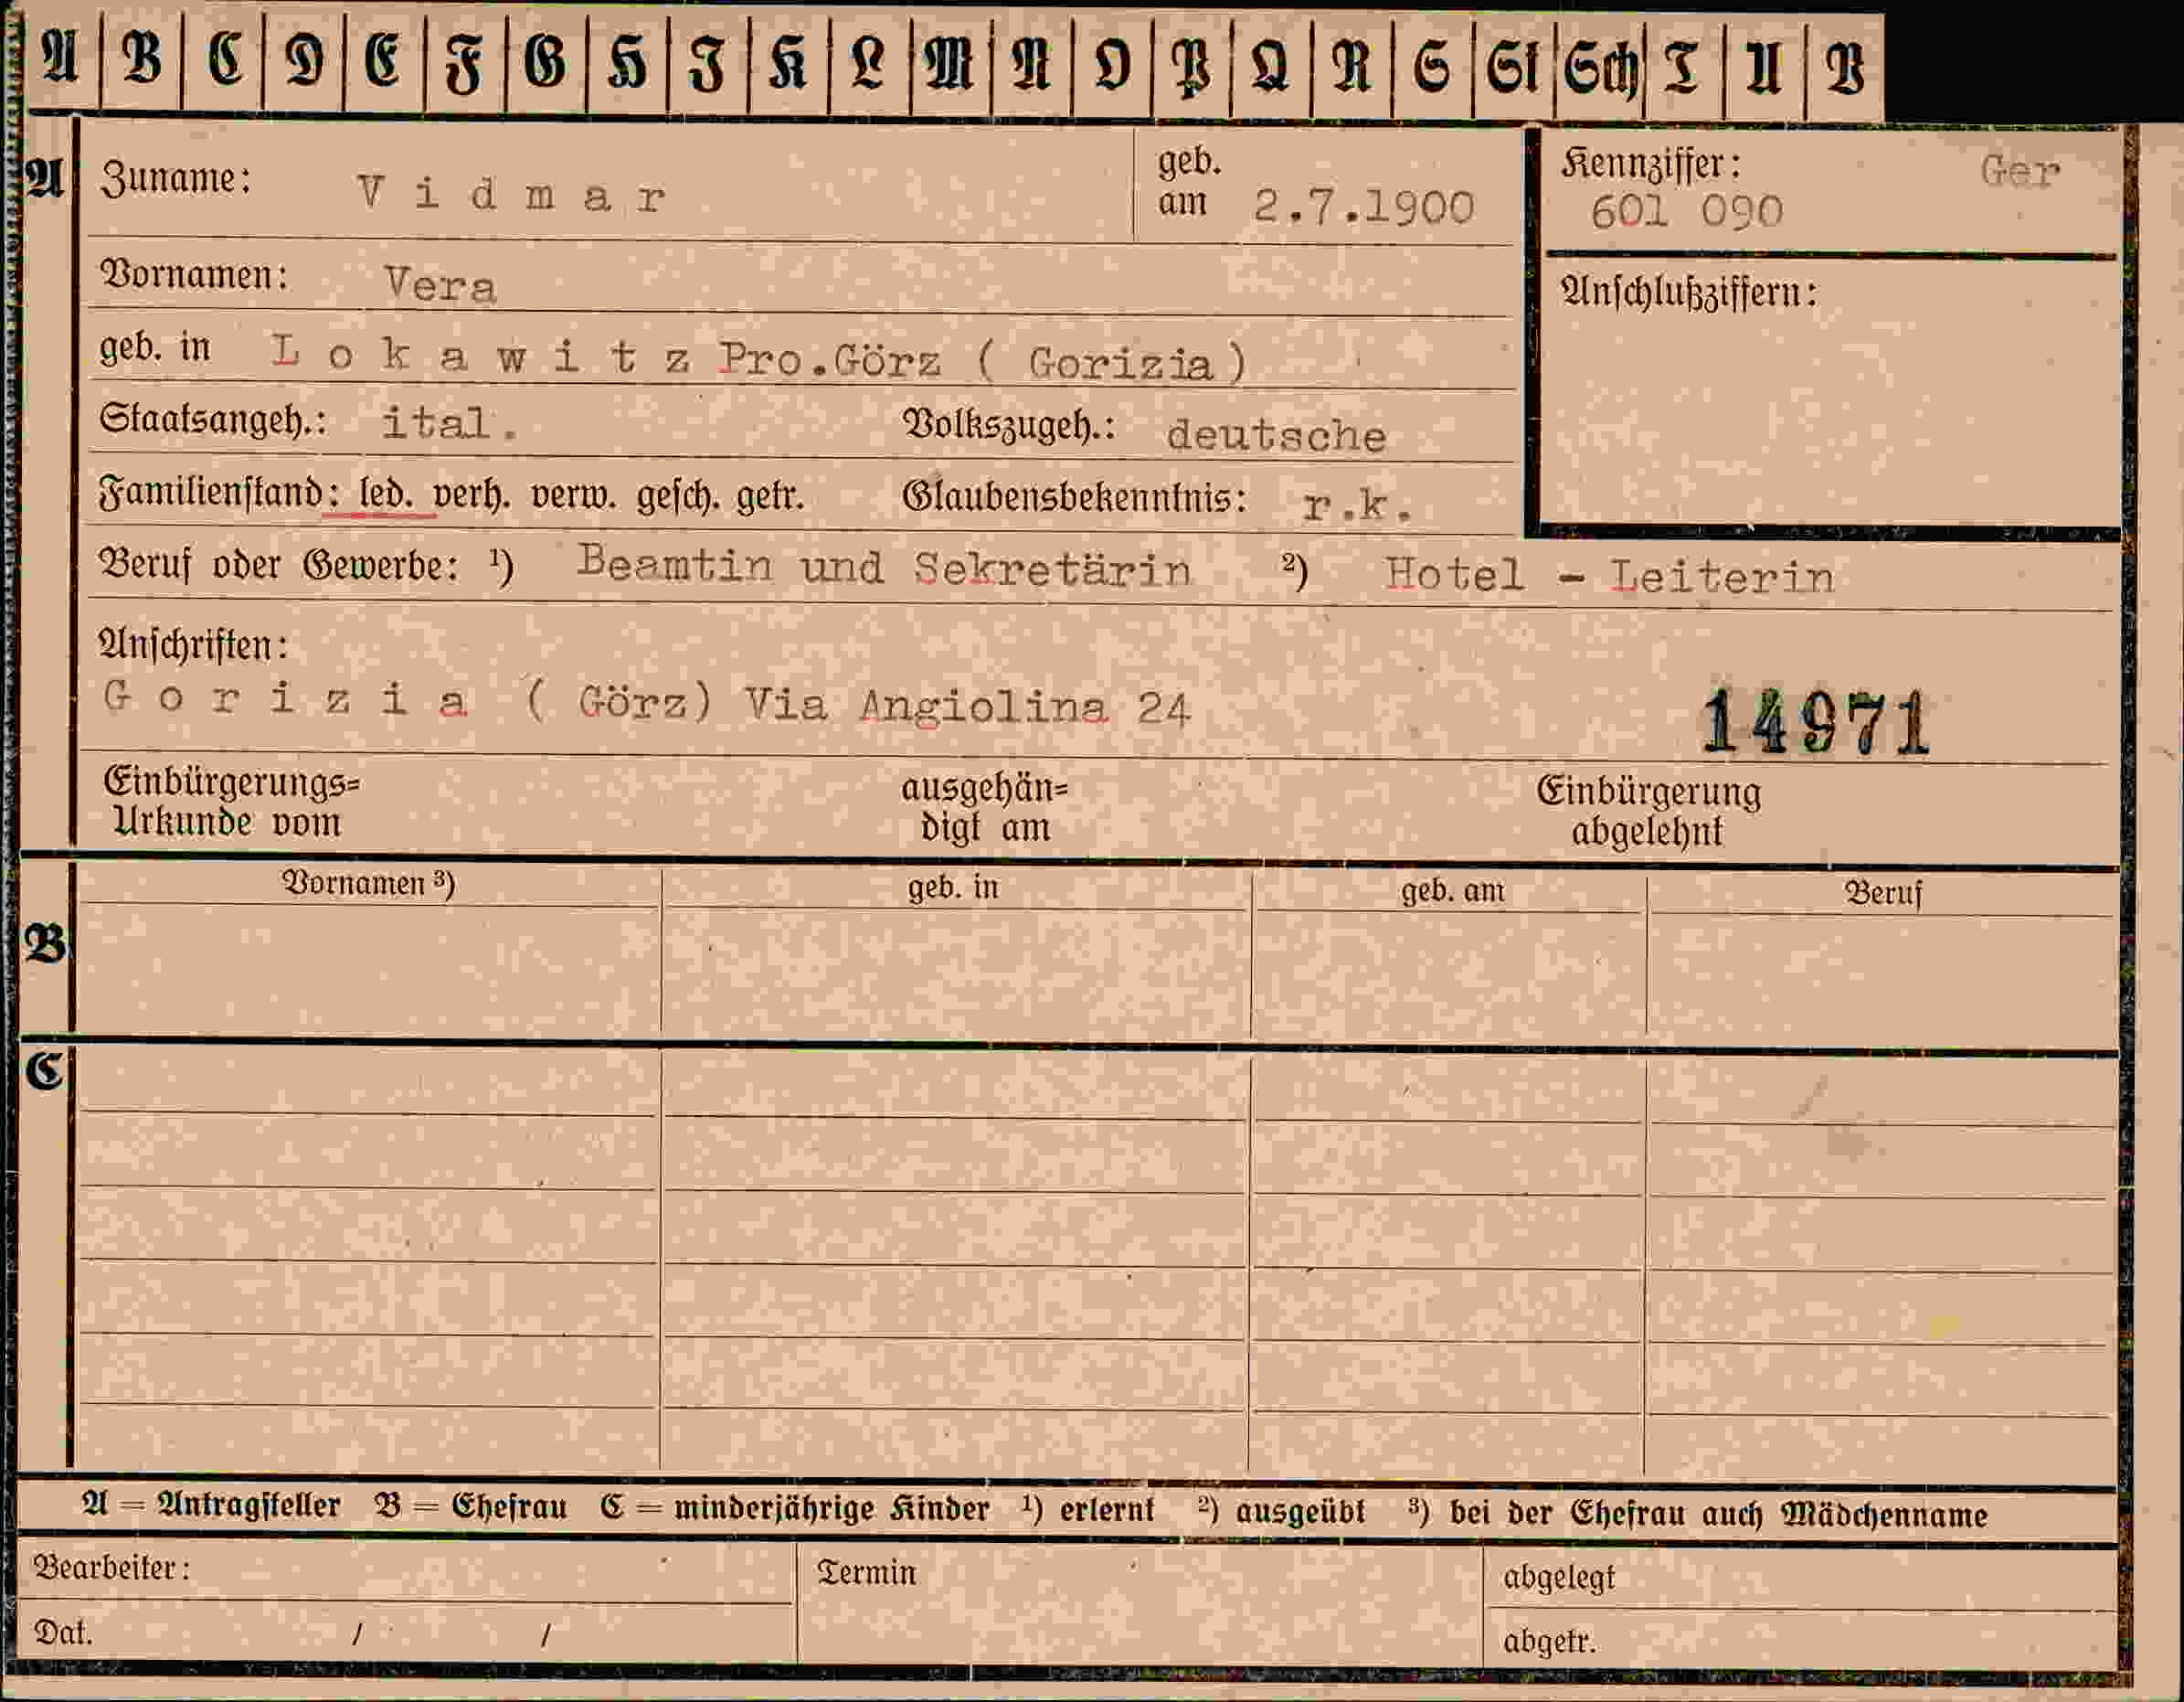 A B C D E F G H I K L M N O P Q R S St Sch T U V
A Zuname: Vidmar geb. am 2.7.1900 Kennziffer: Ger
601 090
Vornamen: Vera Anschlußziffern:
geb. in Lokawitz Pro.Görz ( Gorizia)
Staatsangeh.: ital. Volkszugeh.: deutsche
Familienstand: led. verh. verw. gesch. getr. Glaubensbekenntnis: r.k.
Beruf oder Gewerbe: ¹) Beamtin und Sekretärin ²) Hotel - Leiterin
Anschriften:
Gorizia ( Görz) Via Angiolina 24 14971
Einbürgerungs= ausgehän= Einbürgerung
Urkunde vom digt am abgelehnt
Vornamen ³) geb. in geb. am Beruf
B
C
A = Antragsteller B = Ehefrau C = minderjährige Kinder ¹) erlernt ²) ausgeübt ³) bei der Ehefrau auch Mädchenname
Bearbeiter: Termin abgelegt
Dat. / / abgetr.